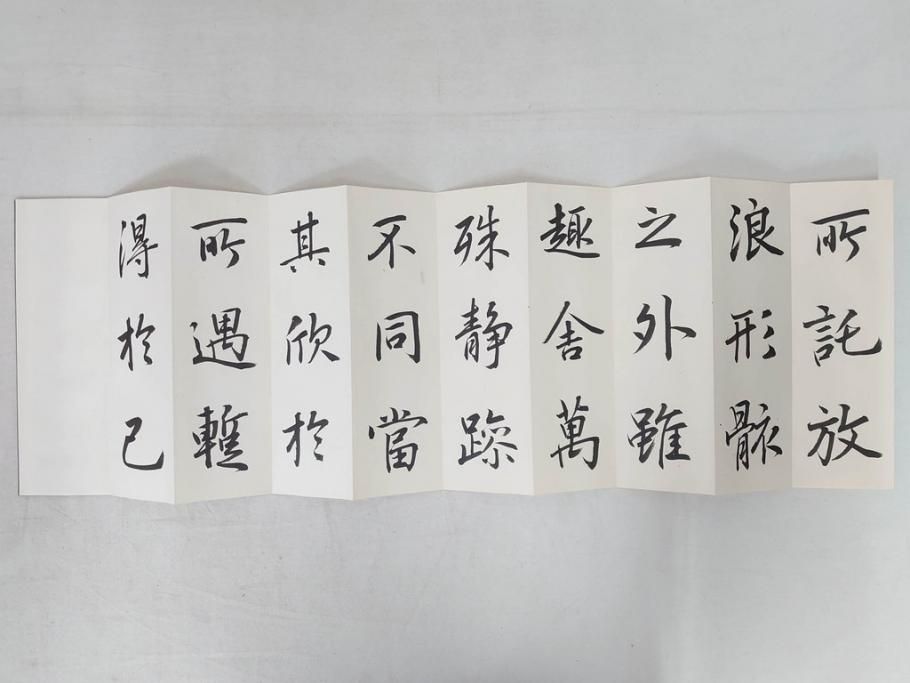 所託放
浪形骸
之外雖
趣舍萬
殊静躁
不同當
其欣於
所遇蹔
得於己